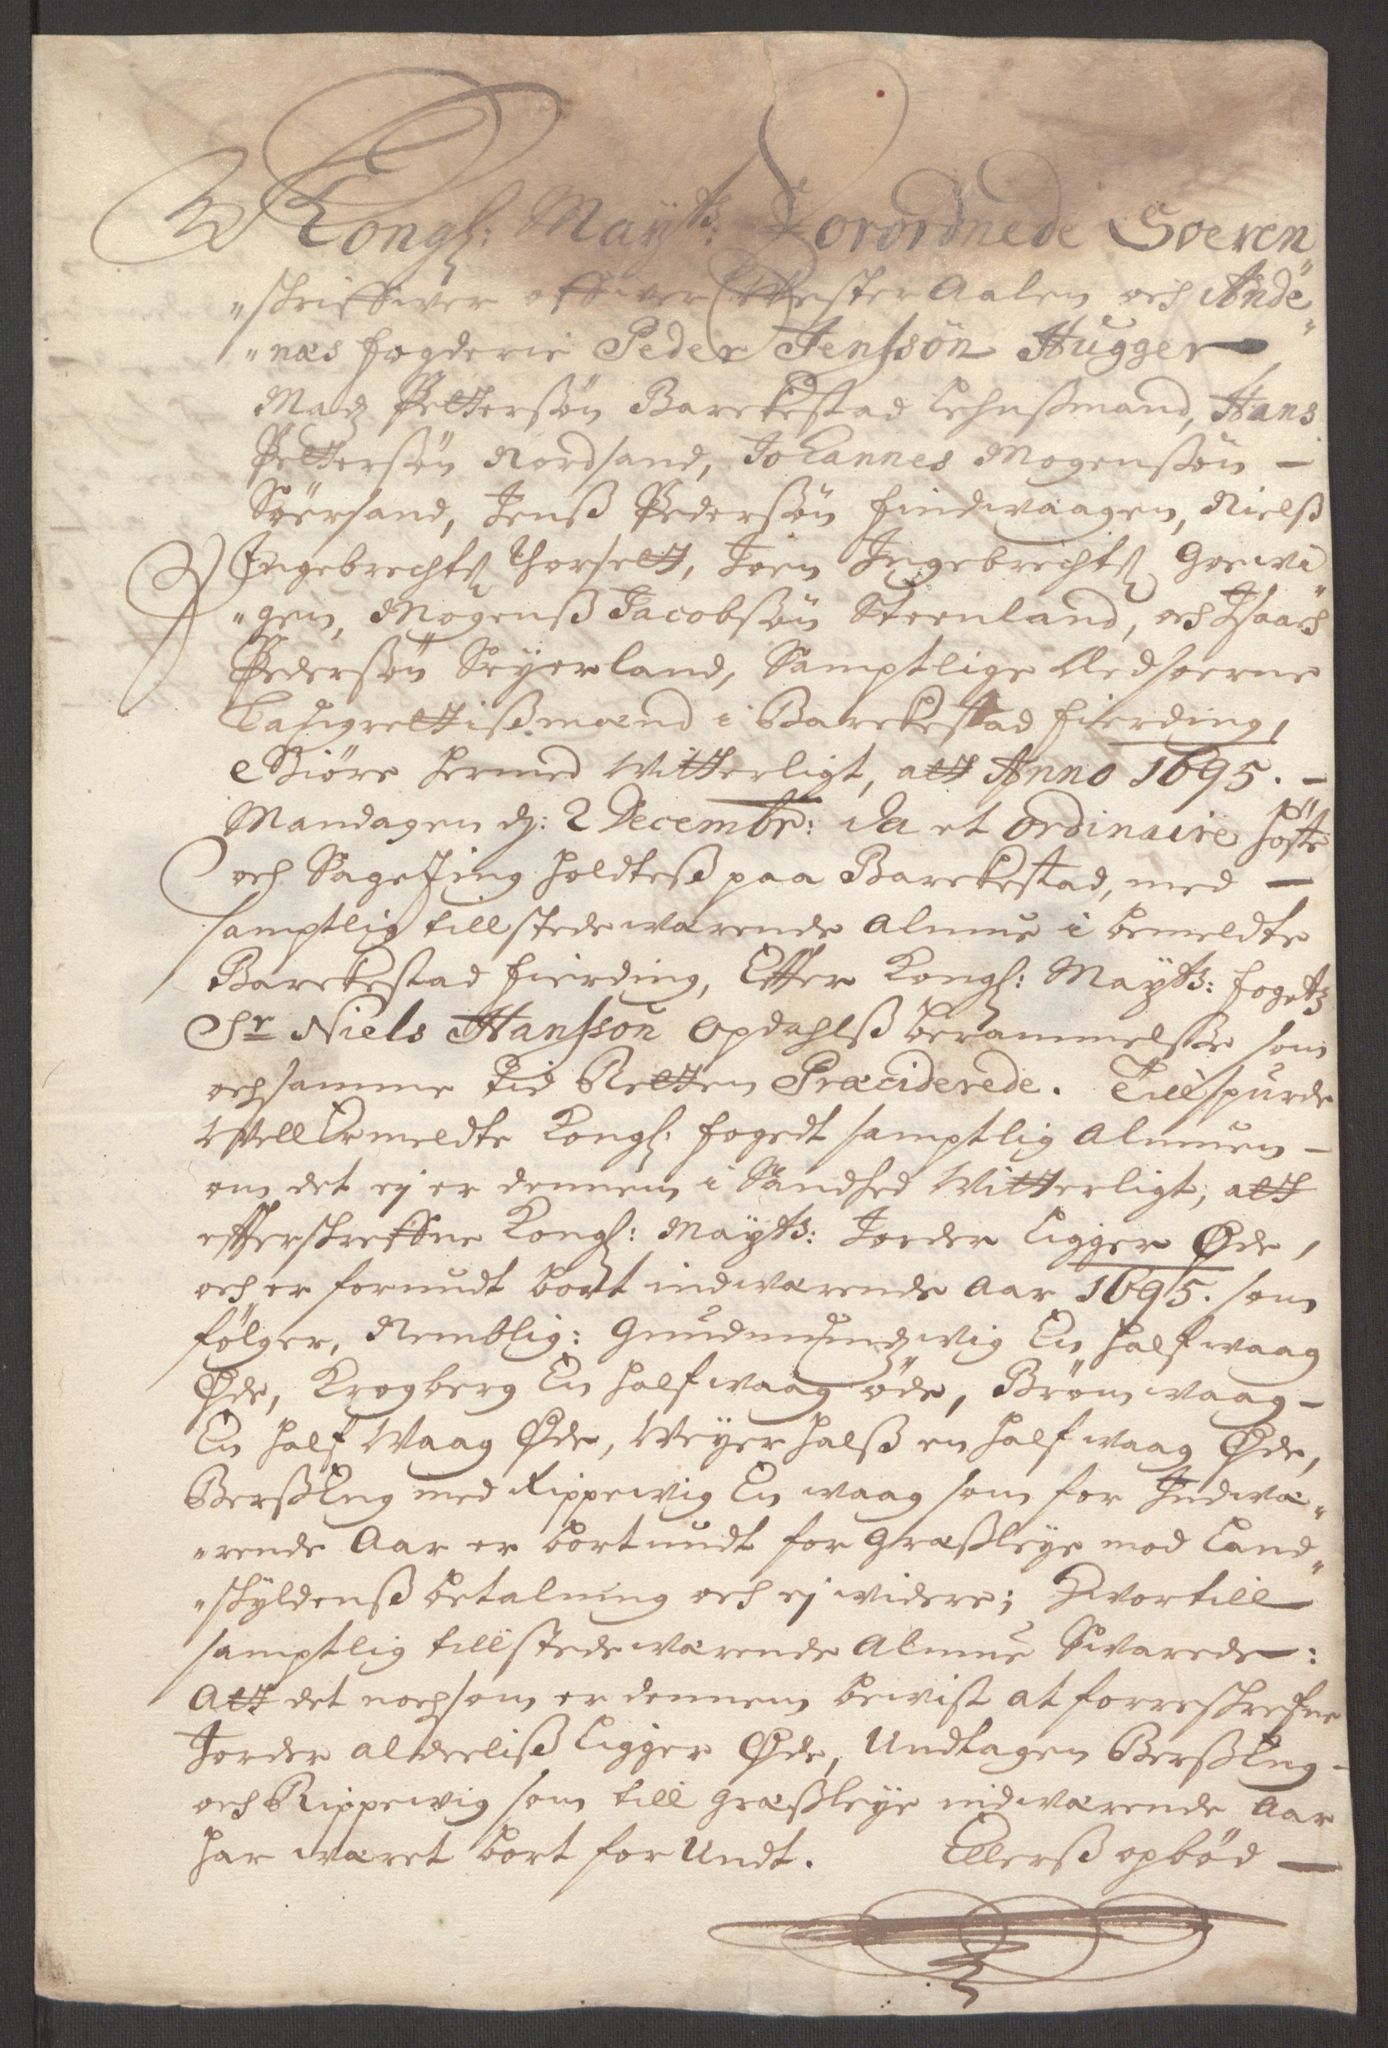 Kongl: Mayts: Forordnede Soeren
"schriffwer offwer Wester Aalen och Ande"
"næs fogderie Peder Jenssøn Hugger
Madz Pettersøn Barkestad Lehnsmand, Hans
Pettersøn Nordsand, Johannes Mogenssøn –
Søersand, Jenß Pederssøn Findwaagen, Nielß
Ingebrechtß Thorsett, Joen Ingebrechtß Goewi"
"gen, Mogenß Jacobsøn Steenland, och Isaach
Pederssøn Seyerland, Samptlige Eedsoerne
Laugrettißmænd i Barekestad fierding,
Giøre hermed Witterligt, att Anno 1695. –
Mandagen dj: 2 Decembr: da et ordinaire Høste
och Sageting holdteß paa Barekestad, med –
samptlig tillstedewærende Almue i bemeldte
Barekestad fierding, Effter Kongl: Mayts: fogetz
Sr Niels Hanssøn Opdahlß berammelsse som
och samme tid Retten Præciderede. Tillspurde
Wellbemeldte Kongl: fogedt samptlig Almuen –
om det ej er dennem i Sandhed Witterligt, att
effterskreffne Kongl: Mayts: Jorder ligger Øde,
och er forundt bort indwærende Aar 1695. som
følger, Nemblig: Gudmundzwig En half waag
Øde, Krogberg En half waag øde, Brøm waag –
En half Waag Øde, Weyerhalß en half waag Øde,
Berßeng med Rippewig En waag som for Indwæ"
"rende Aar er bortundt for Græßleye mod Land"
"skyldenß betalning och ej widere; Hworttill
samptlig tillstedewærende Almue Swarede:
Att det nochsom er dennem bewist at forreskrefne
Jorder aldeeliß ligger Øde, Undtagen Berßeng –
och Rippewig som till Græßleye indwærende Aar
har wæret bort forundt. Ellerß opbød –